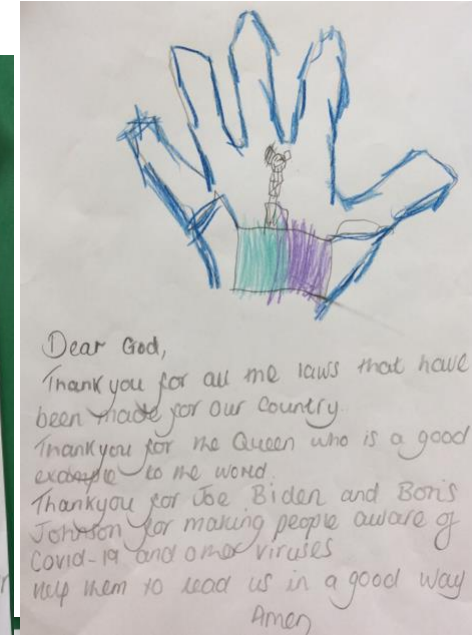 Dear God,
Thank you for all the laws that have
been made for our Country.
Thankyou for the Queen who is a good
example to the world.
Thankyou for Joe Biden and Boris
Johnson for making people aware of
Covid-19 and other viruses
Help them to lead us in a good way
Amen